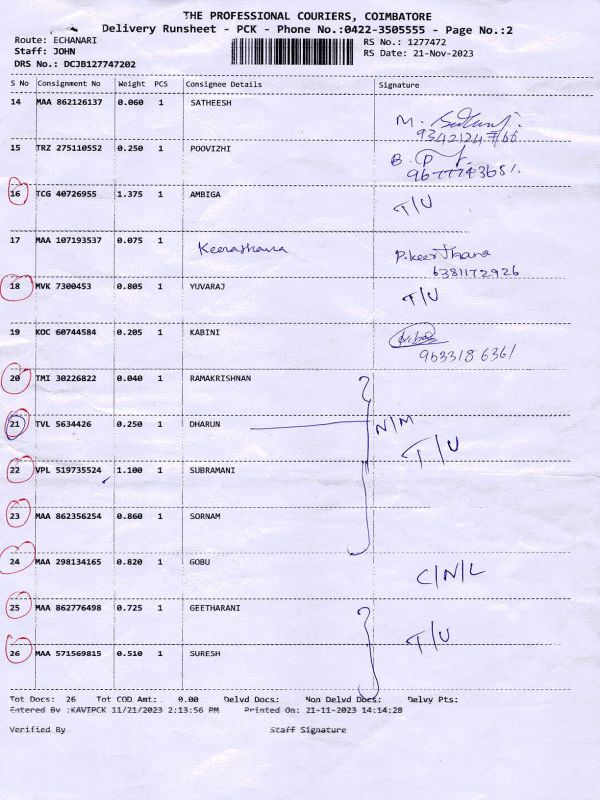 THE PROFESSIONAL COURIERS, COIMBATORE
Delivery Runsheet - PCK - Phone No.:0422-3505555 - Page No.:2
Route: ECHANARI
RS No.: 1277472
Staff: JOHN
RS Date: 21-Nov-2023
DRS No.: DCJB127747202
S No Consignment No Weight PCS Consignee Details Signature
14 MAA 862126137 0.060 1 SATHEESH
M.
15 TRZ 275110552 0.250 1 POOVIZHI
B.
16 TCG 40726955 1.375 1 AMBIGA T/U
17 MAA 107193537 0.075 1 Keerathana P.keerthana
6381172926
18 MVK 7300453 0.805 1 YUVARAJ T/U
19 KOC 60744584 0.205 1 KABINI
963318 6361
20 TMI 30226822 0.040 1 RAMAKRISHNAN
21 TVL 5634426 0.250 1 DHARUN N/M
T/U
22 VPL 519735524 1.100 1 SUBRAMANI
23 MAA 862356254 0.860 1 SORNAM
24 MAA 298134165 0.820 1 GOBU C/N/L
25 MAA 862776498 0.725 1 GEETHARANI
T/U
26 MAA 571569815 0.510 1 SURESH
Tot Docs: 26 Tot COD Amt: 0.00 Delvd Docs: Non Delvd Docs: Delvy Pts:
Entered By :KAVIPCK 11/21/2023 2:13:56 PM Printed On: 21-11-2023 14:14:28
Verified By Staff Signature